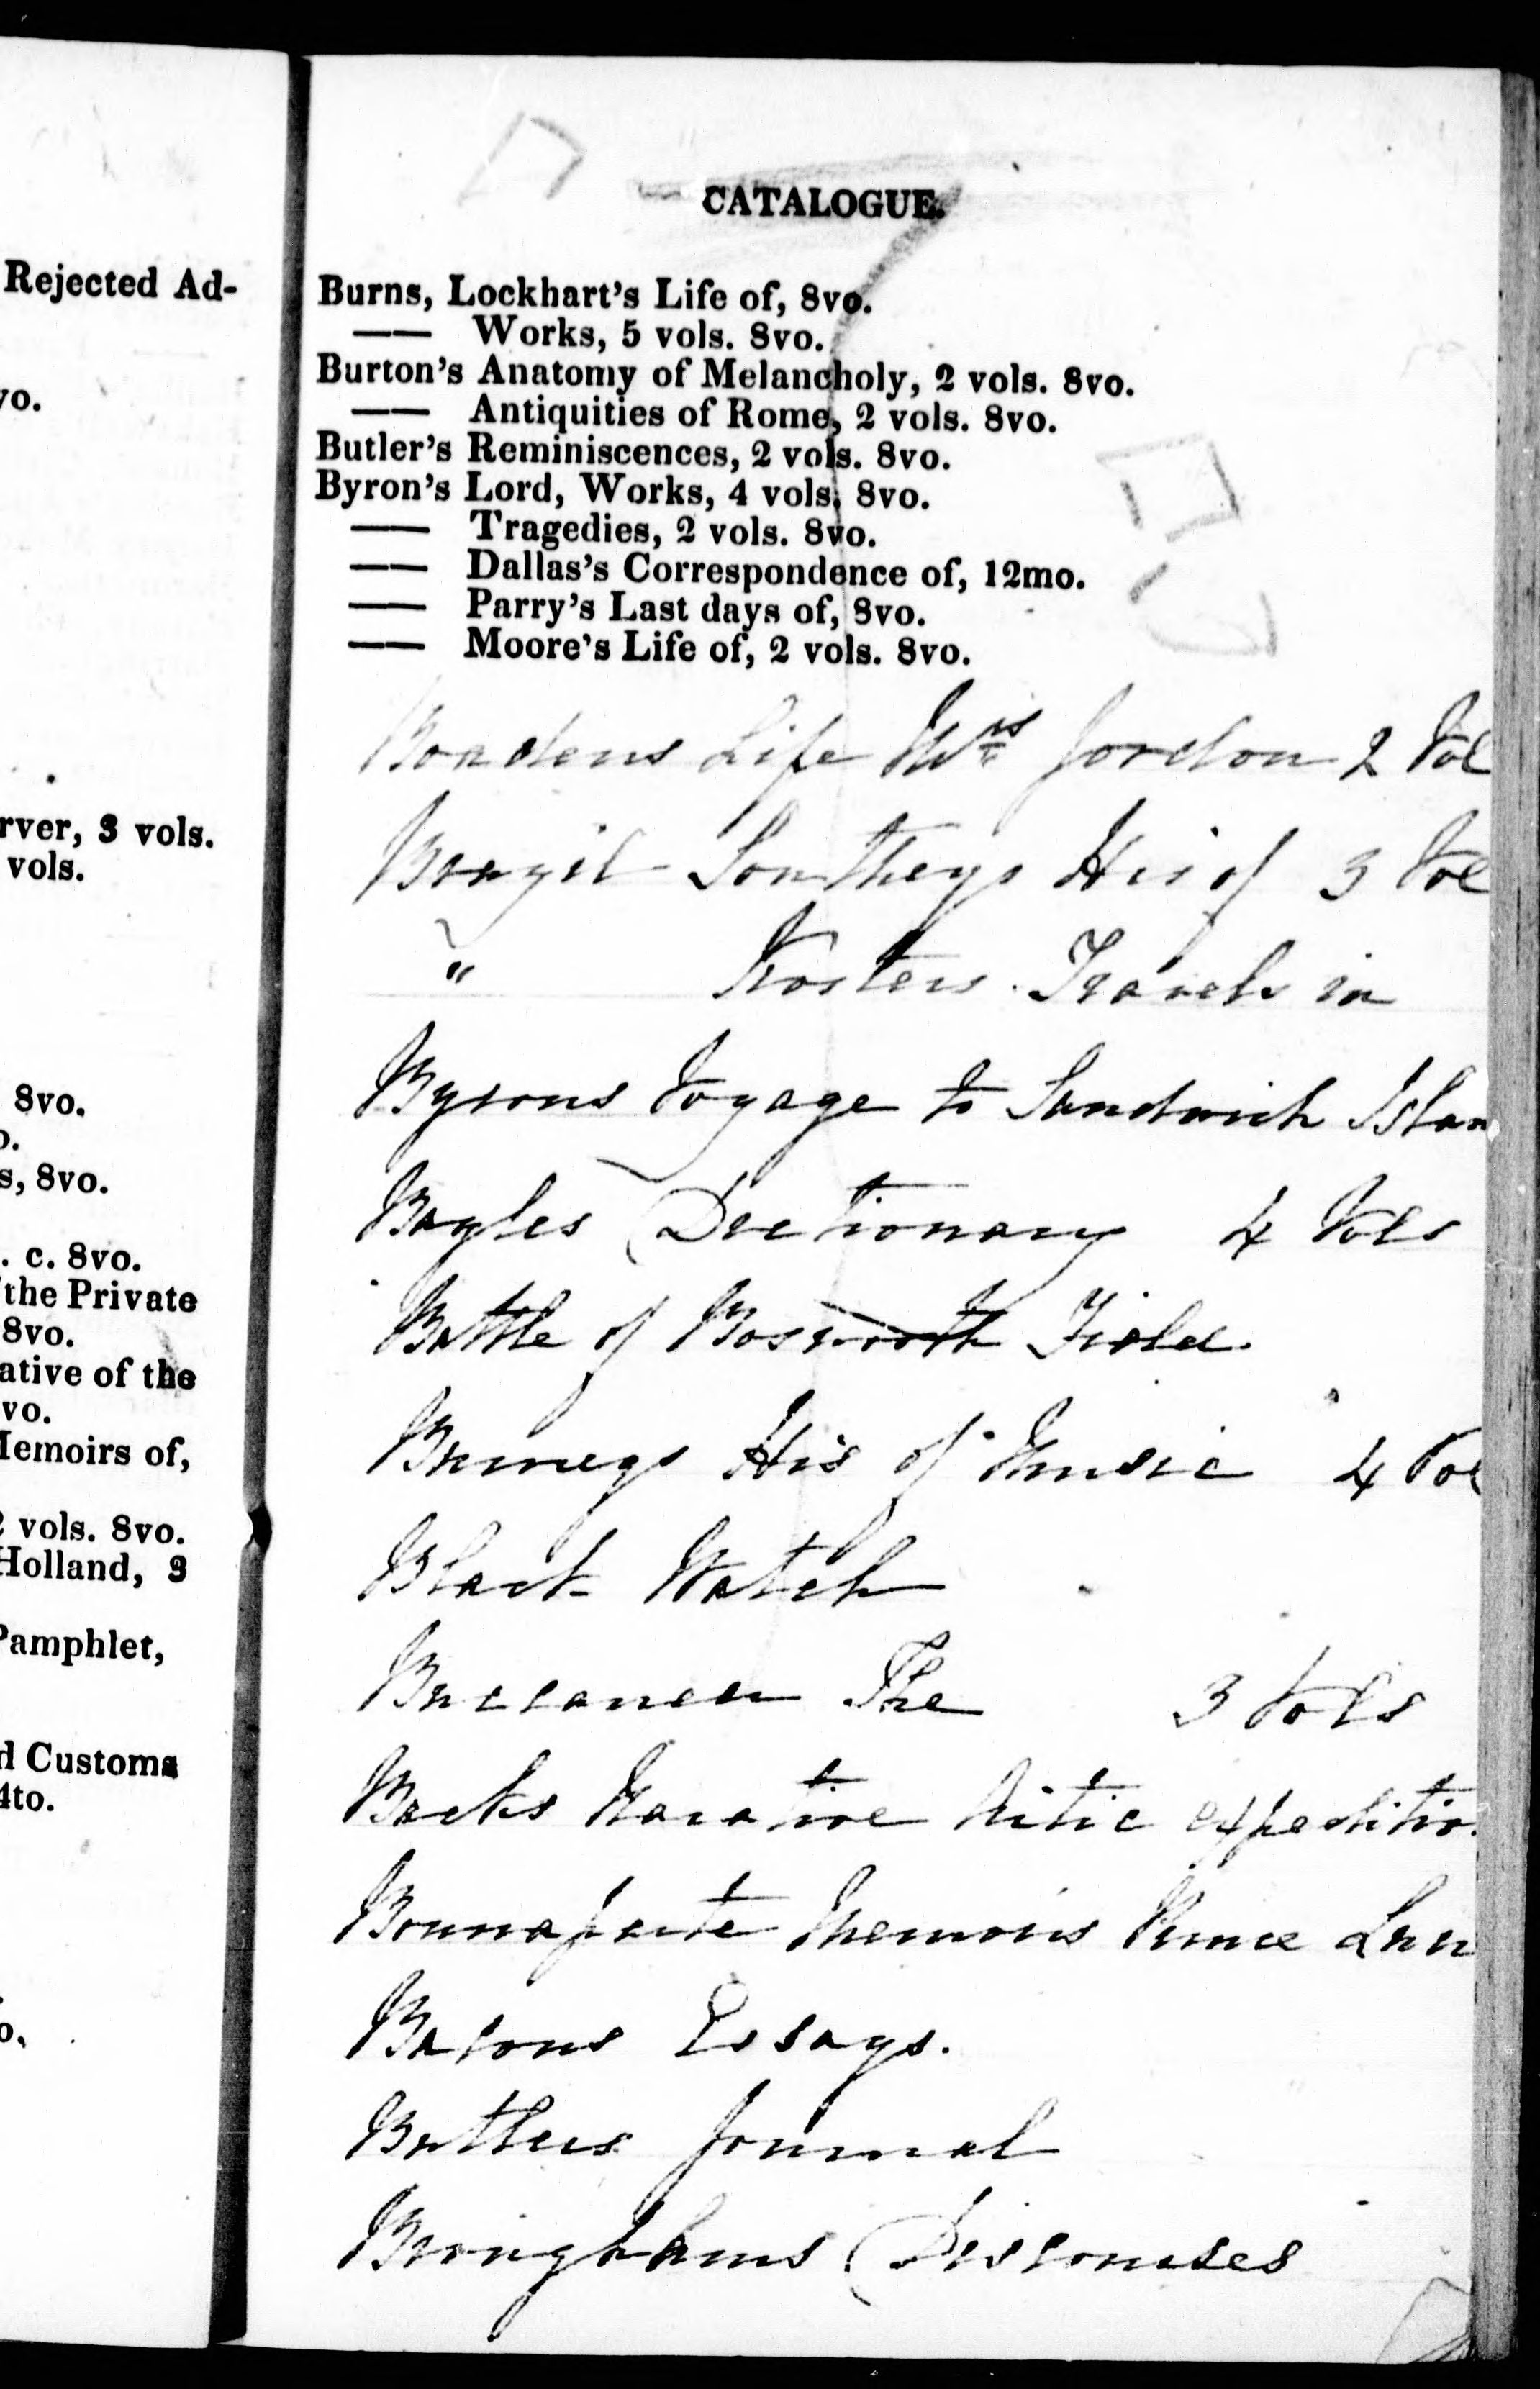 Rejected Ad-
vo.
rver, 3 vols.
vols.
8vo.
o.
s, 8vo.
. c. 8vo.
the Private
8vo.
ative of the
vo.
Memoirs of,
2 vols. 8vo.
Holland, 3
Pamphlet,
d Customs
4to.
o.
CATALOGUE.
Burns, Lockhart's Life of, 8vo.
—— Works, 5 vols. 8vo.
Burton's Anatomy of Melancholy, 2 vols. 8vo.
—— Antiquities of Rome, 2 vols. 8vo.
Butler's Reminiscences, 2 vols. 8vo.
Byron's Lord, Works, 4 vols. 8vo.
—— Tragedies, 2 vols. 8vo.
—— Dallas's Correspondence of, 12mo.
—— Parry's Last days of, 8vo.
—— Moore's Life of, 2 vols. 8vo.
Boadens Life Mrs Jordon 2 Vol
Brazil Southeys His of 3 Vol
" Kosters Travels in
Byrons Voyage to Sandwich Islan
Bayles Dictionary 4 Vols
Battle of Bosworth Field.
Burneys His of Music 4 Vol
Black Watch
Buccaneer The 3 Vols
Backs Narative Artic expeditio
Bounaparte Memoirs Prince Luc
Bacons Essays.
Butlers Journal
Broughams Discourses